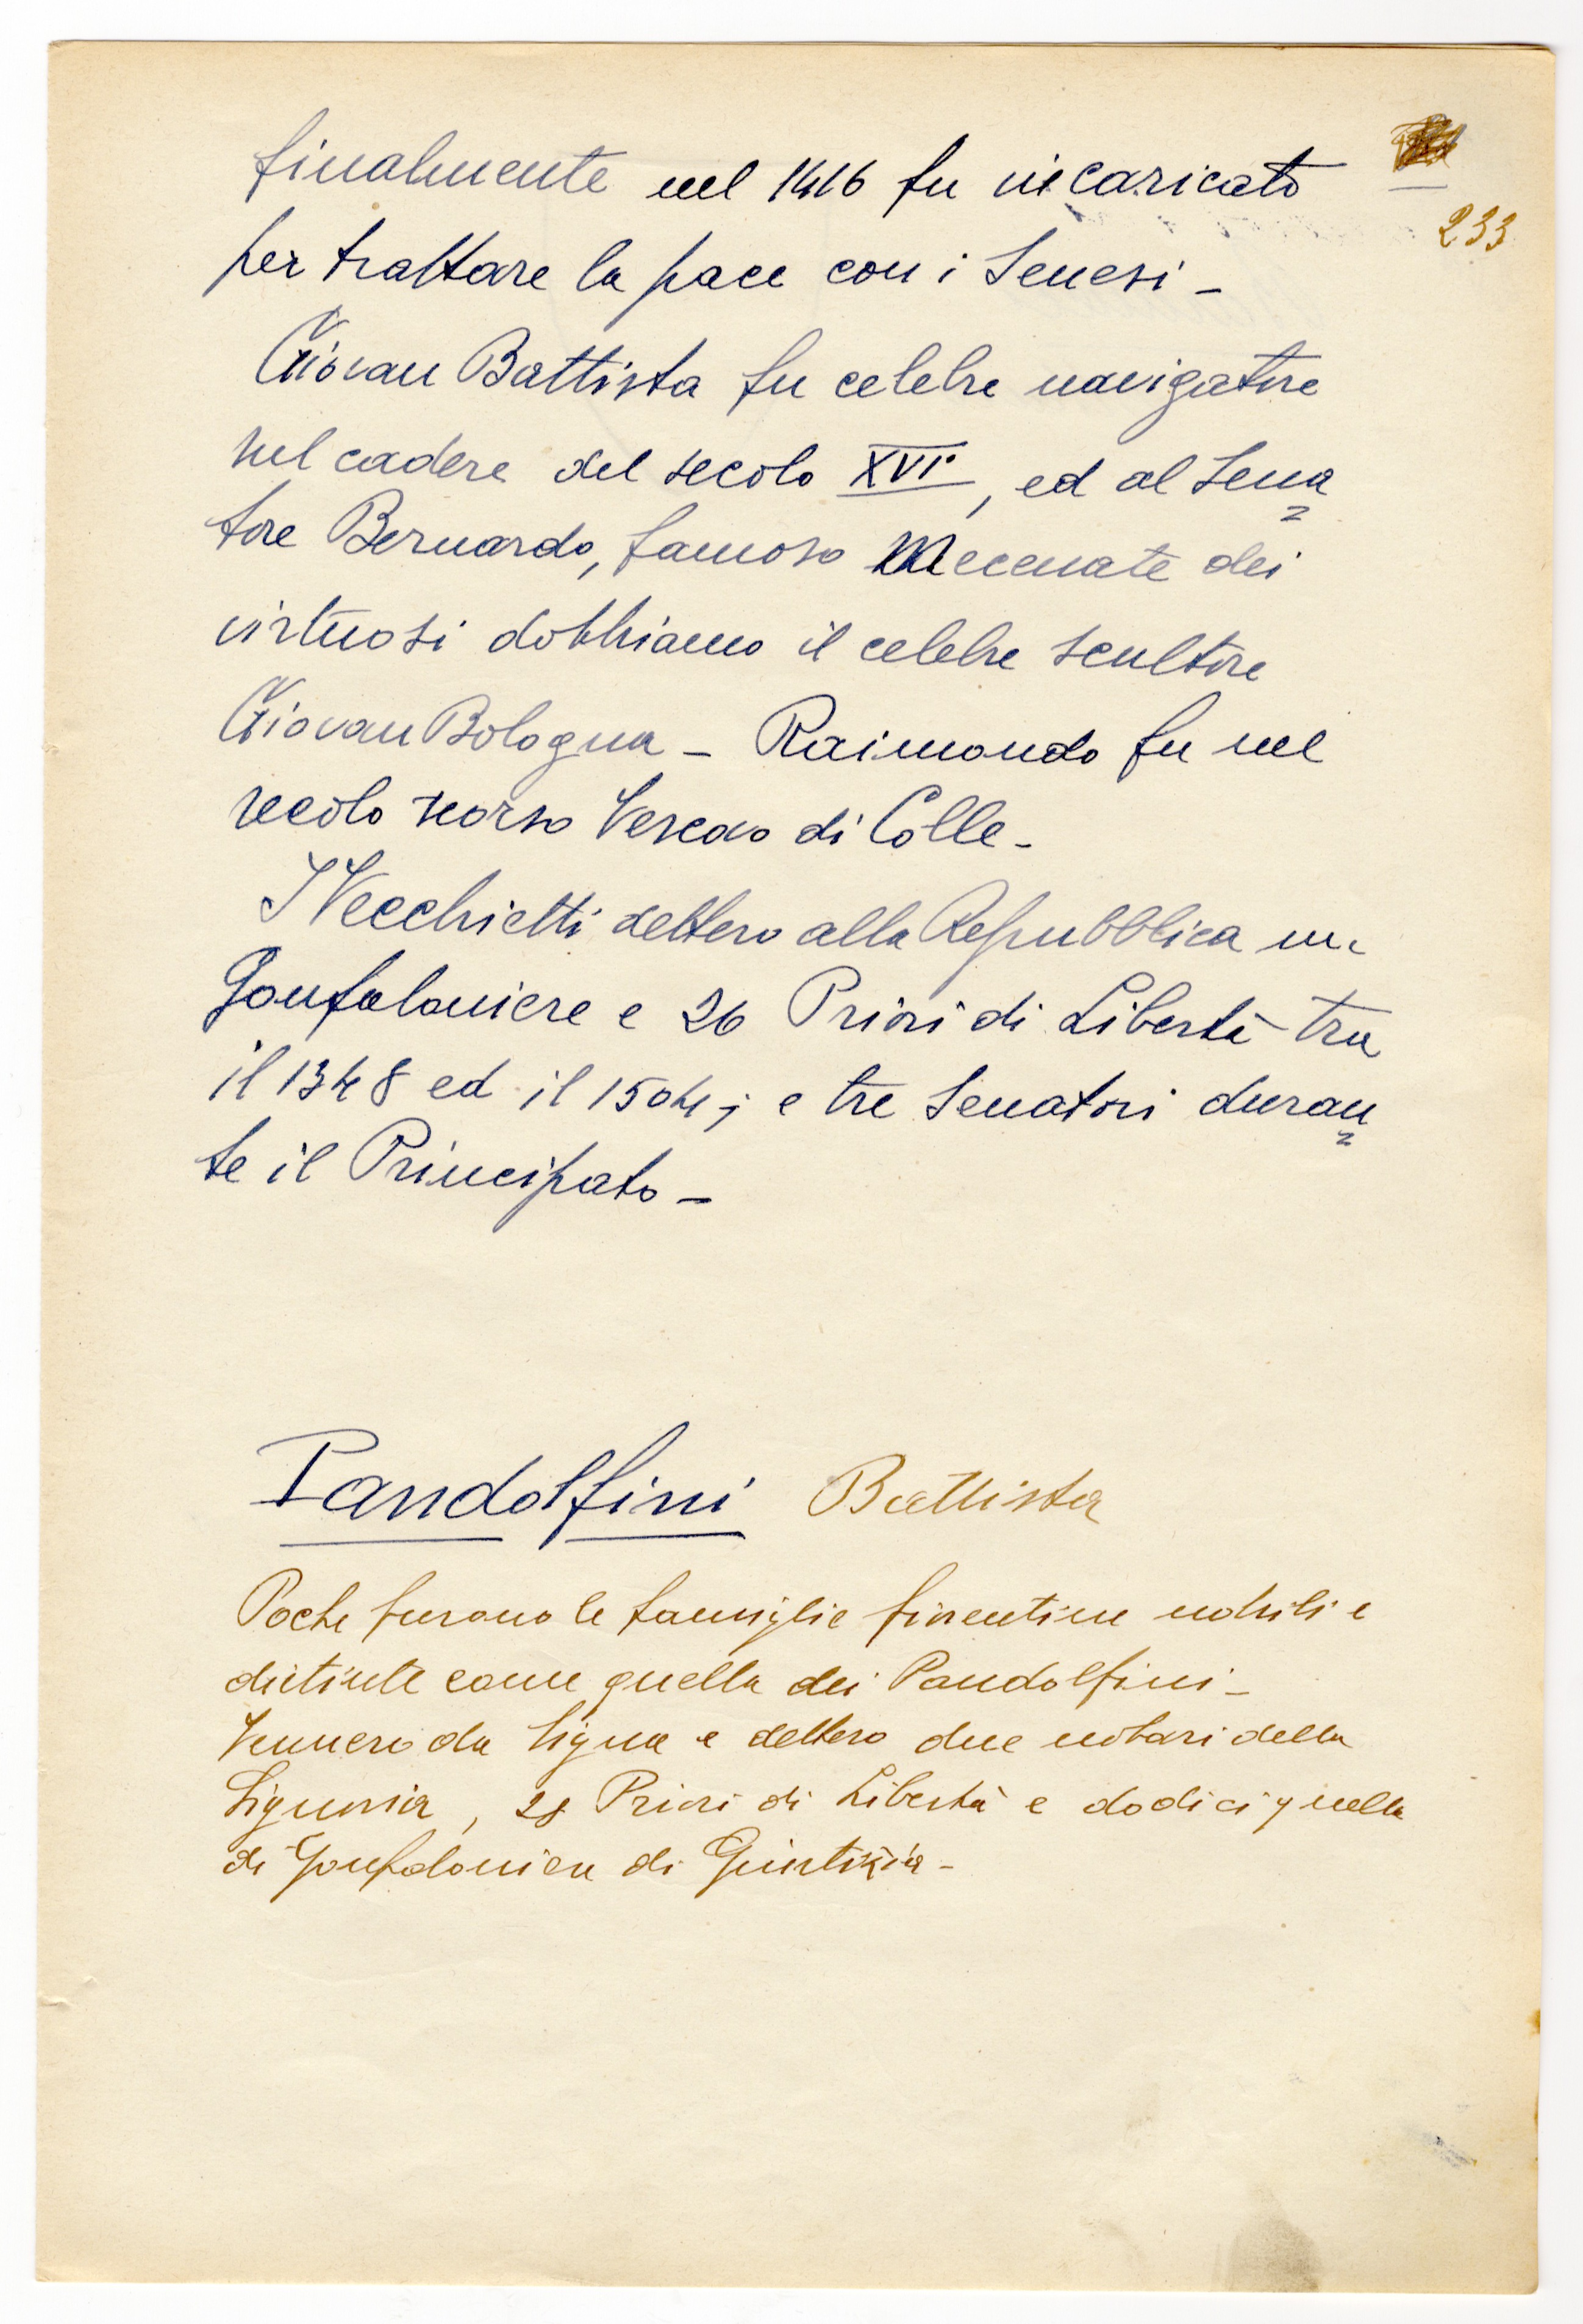 233
finalmente nel 1416 fu incaricato
per trattare la pace con i Senesi -
Giovan Battista fu celebre navigatore
nel cadere del secolo XVI°, ed al Sena
tore Bernardo, famoso Mecenate dei
virtuosi dobbiamo il celebre scultore
Giovan Bologna - Raimondo fu nel
secolo scorso Vescovo di Colle -
I Vecchietti dettero alla Repubblica un
Gonfaloniere e 26 Priori di Libertà tra
il 1348 ed il 1504; e tre Senatori duran
te il Principato -
Pandolfini Battista
Poche furono le famiglie fiorentine nobili e
distinte come quella dei Pandolfini -
Vennero da Signa e dettero due notari della
Signoria, 28 Priori di Libertà e dodici quella
di Gonfaloniere di Giustizia -